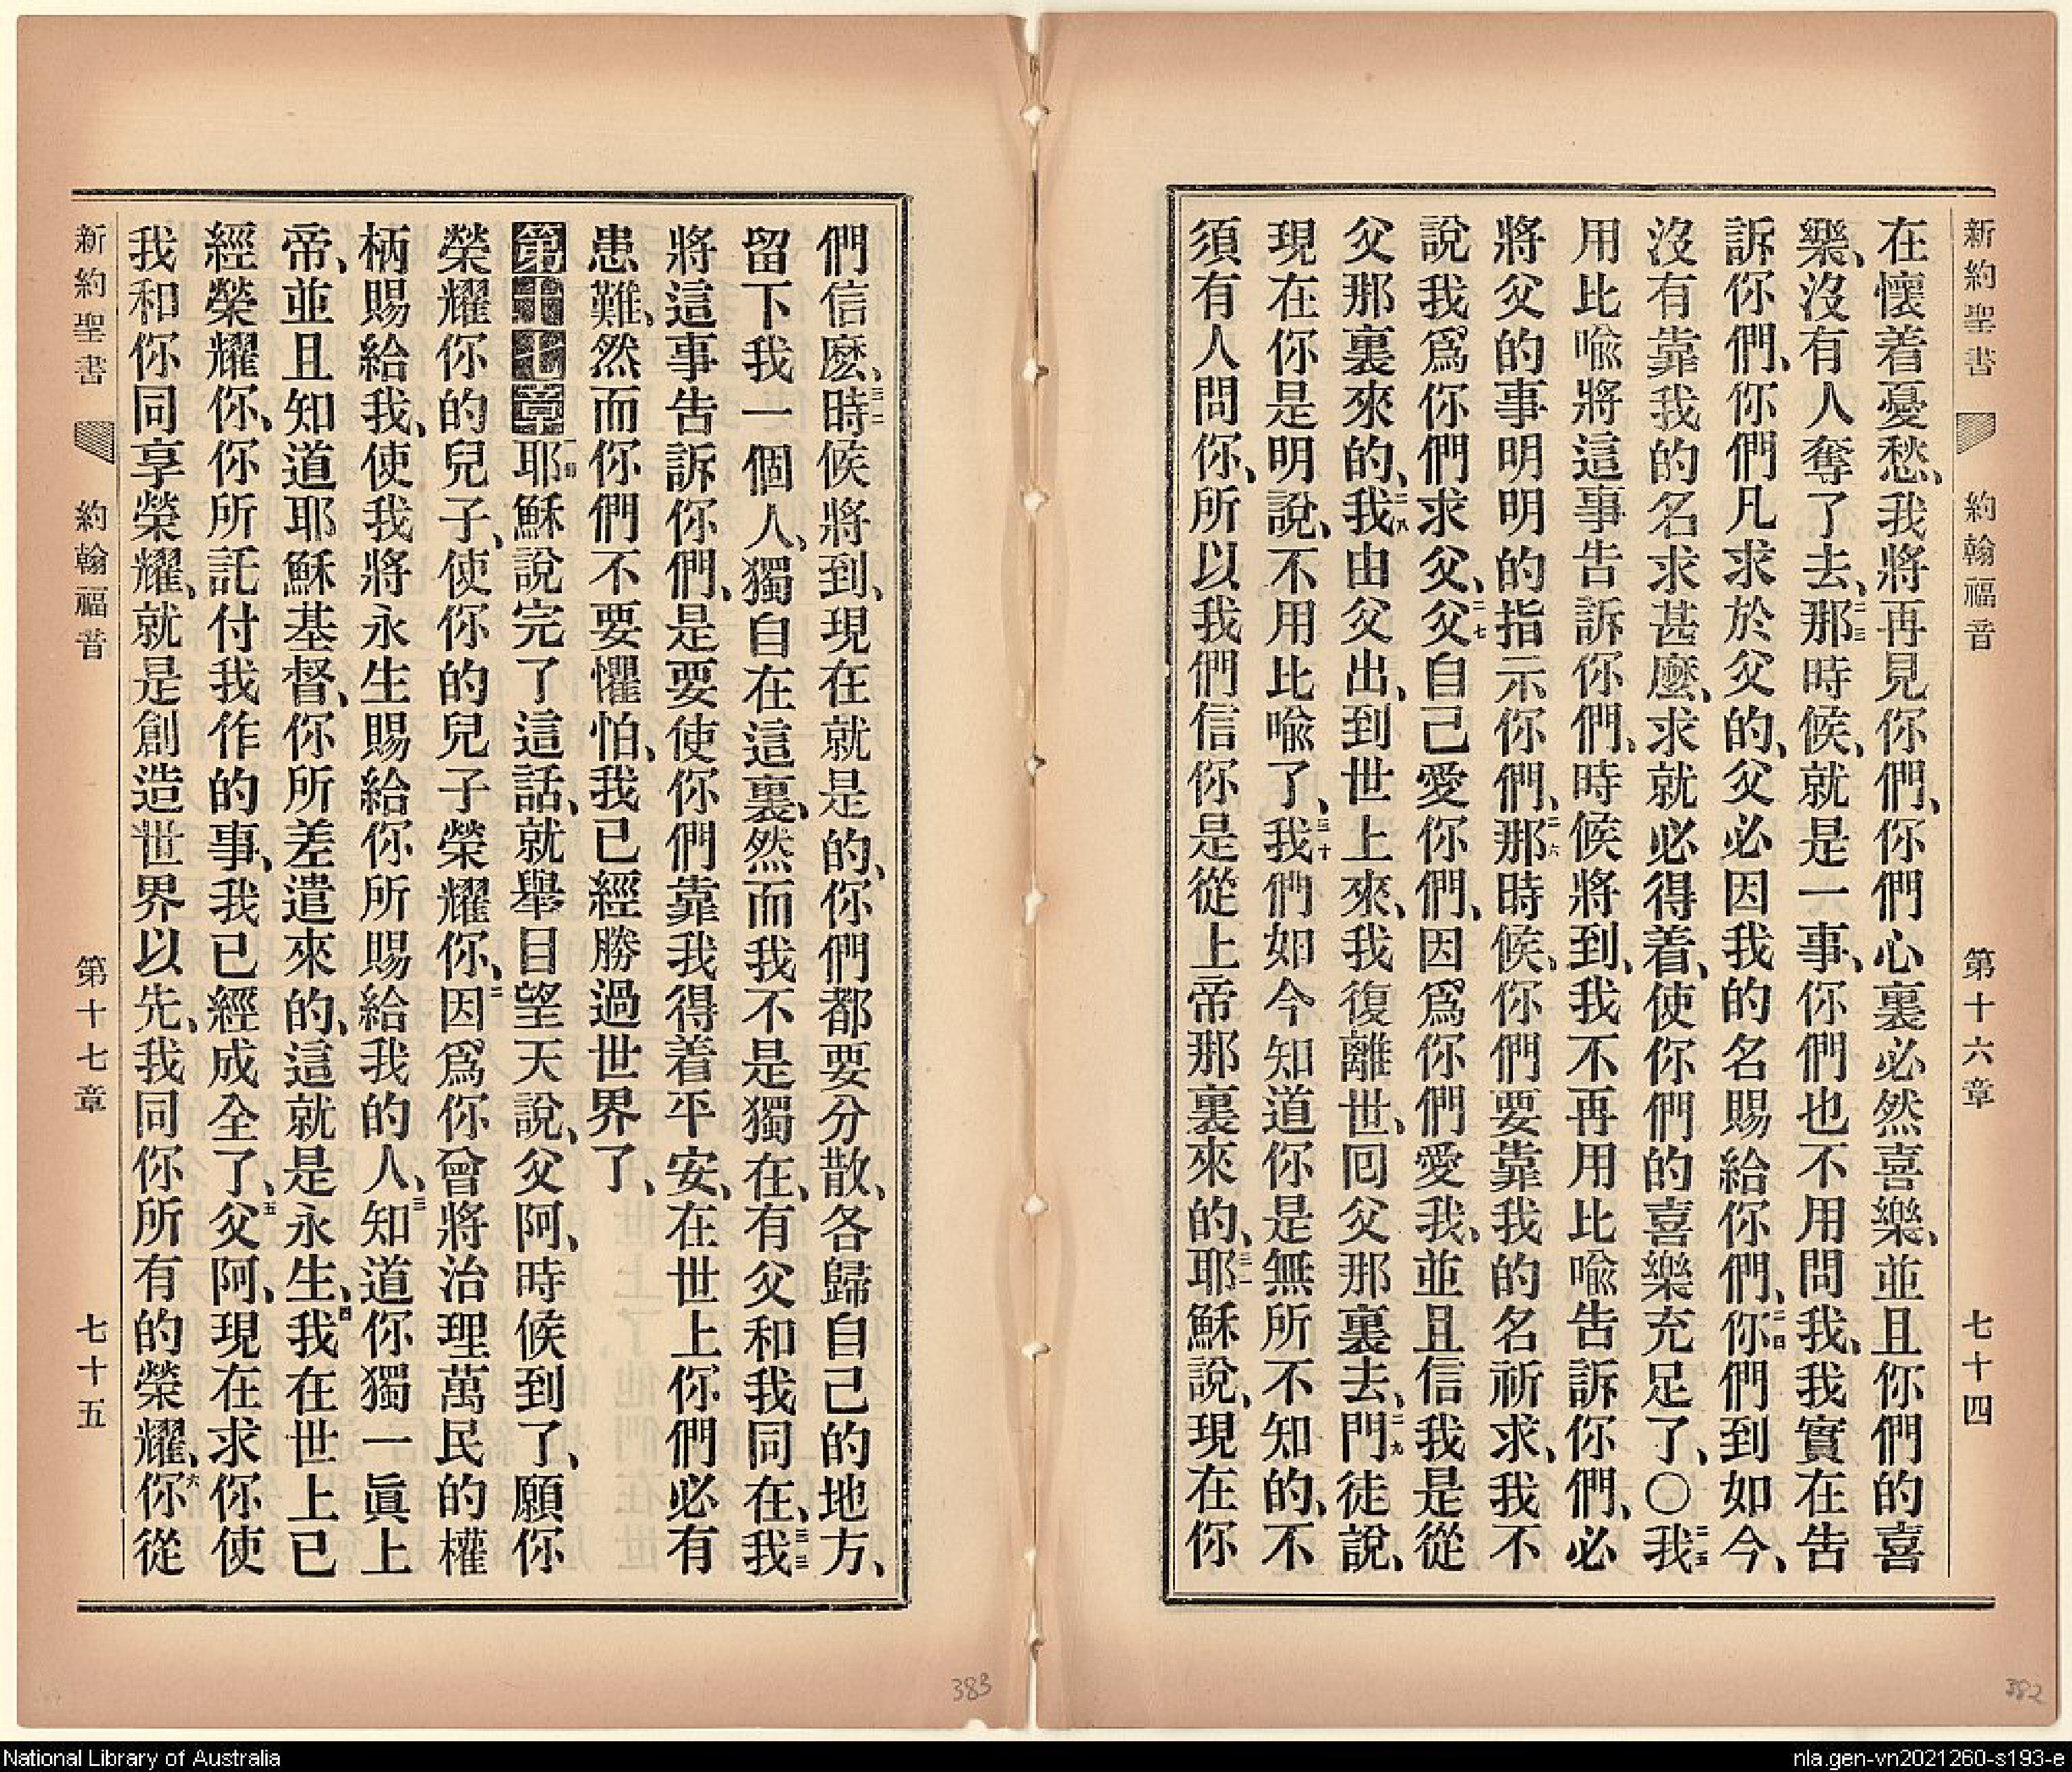 新約聖書 約翰福音 第十六章 七十四
在懷着憂愁、我將再見你們、你們心裏必然喜樂、並且你們的喜
樂、沒有人奪了去、二三那時候、就是一事、你們也不用問我、我實在告
訴你們、你們凡求於父的、父必因我的名賜給你們、二四你們到如今、
沒有靠我的名求甚麽、求就必得着、使你們的喜樂充足了、〇二五我
用比喩將這事告訴你們、時候將到、我不再用比喩告訴你們、必
將父的事明明的指示你們、二六那時候、你們要靠我的名祈求、我不
說我爲你們求父、二七父自己愛你們、因爲你們愛我、並且信我是從
父那裏來的、二八我由父出、到世上來、我復離世、囘父那裏去、二九門徒說、
現在你是明說、不用比喩了、三十我們如今知道你是無所不知的、不
須有人問你、所以我們信你是從上帝那裏來的、三一耶穌說、現在你
們信麽、三二時候將到、現在就是的、你們都要分散、各歸自己的地方、
留下我一個人、獨自在這裏、然而我不是獨在、有父和我同在、三三我
將這事告訴你們、是要使你們靠我得着平安、在世上你們必有
患難、然而你們不要懼怕、我已經勝過世界了、
第十七章一節耶穌說完了這話、就舉目望天說、父阿、時候到了、願你
榮耀你的兒子、使你的兒子榮耀你、二因爲你曾將治理萬民的權
柄賜給我、使我將永生賜給你所賜給我的人、三知道你獨一眞上
帝、並且知道耶穌基督、你所差遣來的、這就是永生、四我在世上已
經榮耀你、你所託付我作的事、我已經成全了、五父阿、現在求你使
我和你同享榮耀、就是創造世界以先、我同你所有的榮耀、六你從
新約聖書 約翰福音 第十七章 七十五
383
382
National Library of Australia
nla.gen-vn2021260-s193-e